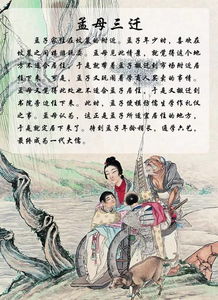 孟母三迁
孟子家住在坟墓的附近。孟子年少时，喜欢在
坟墓之间嬉游玩。孟母见此情景，就觉得这个地
方不适合居住，于是就带着孟子搬迁到市场附近居
住下来。可是，孟子又玩闹着学商人买卖的事情。
孟母又觉得此处也不适合孟子居住，于是又搬迁到
书院旁边住下来。此时，孟子便模仿儒生学作礼仪
之事。孟母认为，这正是孟子所适宜居住的地方，
于是就定居下来了。待到孟子年龄稍长，通学六艺，
最终成为一代大儒。